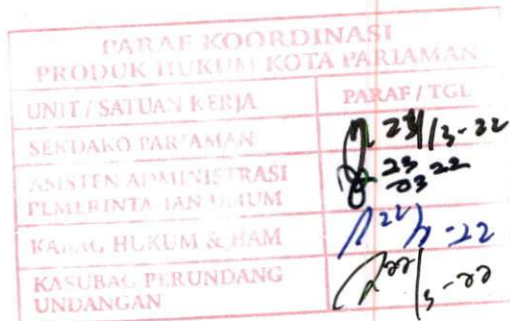 PARAF KOORDINASI
PRODUK HUKUM KOTA PARIAMAN
UNIT / SATUAN KERJA PARAF / TGL
SEKDAKO PARIAMAN 23/3-22
ASISTEN ADMINISTRASI 23
PEMERINTAHAN UMUM 03 22
KABAG HUKUM & HAM 22/3-22
KASUBAG PERUNDANG 22/3-22
UNDANGAN